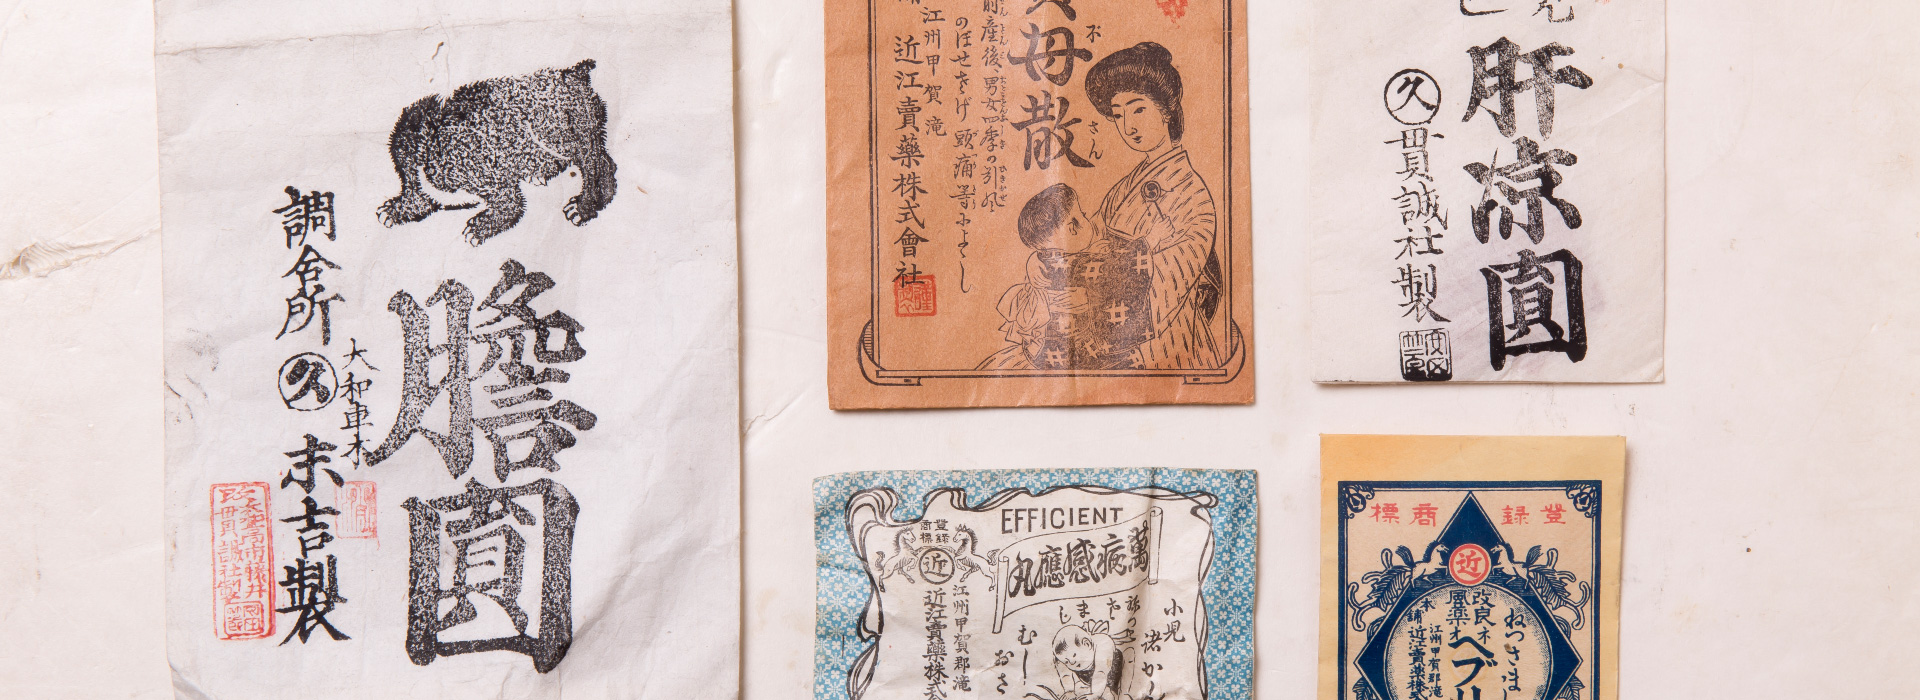 膽圓
大和車木
調合所 久 末吉製
母散
さん
前産後、男女四季の引風
のぼせさげ 頭痛等によし
江州甲賀滝
近江賣藥株式會社
肝涼圓
久 貫誠社製
EFFICIENT
萬病感應丸
登録
商標
近
小児
諸か
むし
おさ
江州甲賀郡滝
近江賣藥株式
登録 商標
近
ねつさまし
改良
風藥
ヘブリ
本舗
近江賣藥株式